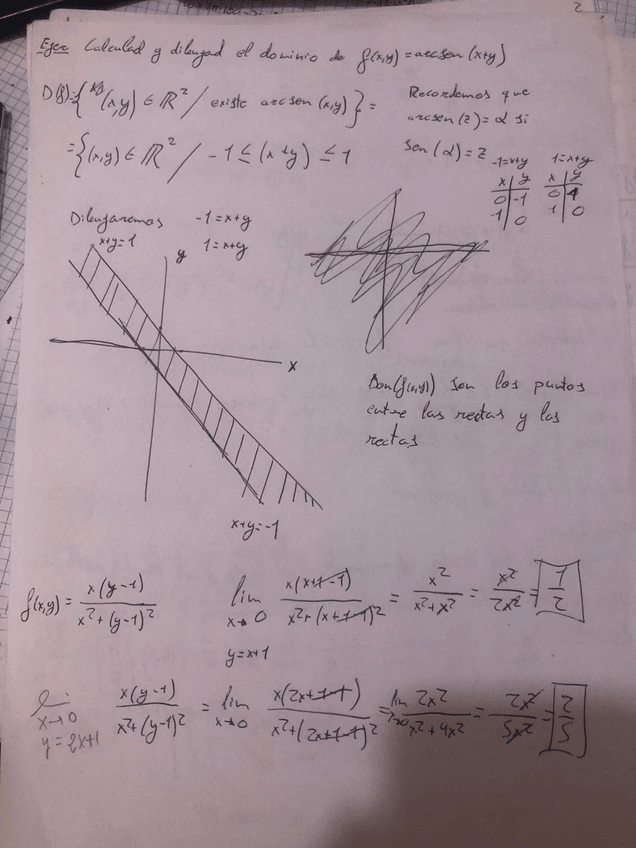 2
Ejer Calculad y dibujad el dominio de f(x,y) = arcsen(x+y)
D(f) = {(x,y) ∈ ℝ² / existe arcsen(x,y)} =
Recordemos que
arcsen(z) = α si
sen(α) = z
= {(x,y) ∈ ℝ² / -1 ≤ (x+y) ≤ 1
-1=x+y
x y
0 -1
-1 0
1=x+y
x y
0 1
1 0
Dibujaremos -1=x+y
1=x+y
x+y=1
y
x
x+y=-1
Dom(f(x,y)) son los puntos
entre las rectas y las
rectas
f(x,y) = x(y-1) / x²+(y-1)²
lim x→0 y=x+1 x(x+1-1) / x²+(x+1-1)² = x² / x²+x² = x² / 2x² = 1/2
x→0 y=2x+1 x(y-1) / x²+(y-1)² = lim x→0 x(2x+1-1) / x²+(2x+1-1)² = lim x→0 2x² / x²+4x² = 2x² / 5x² = 2/5